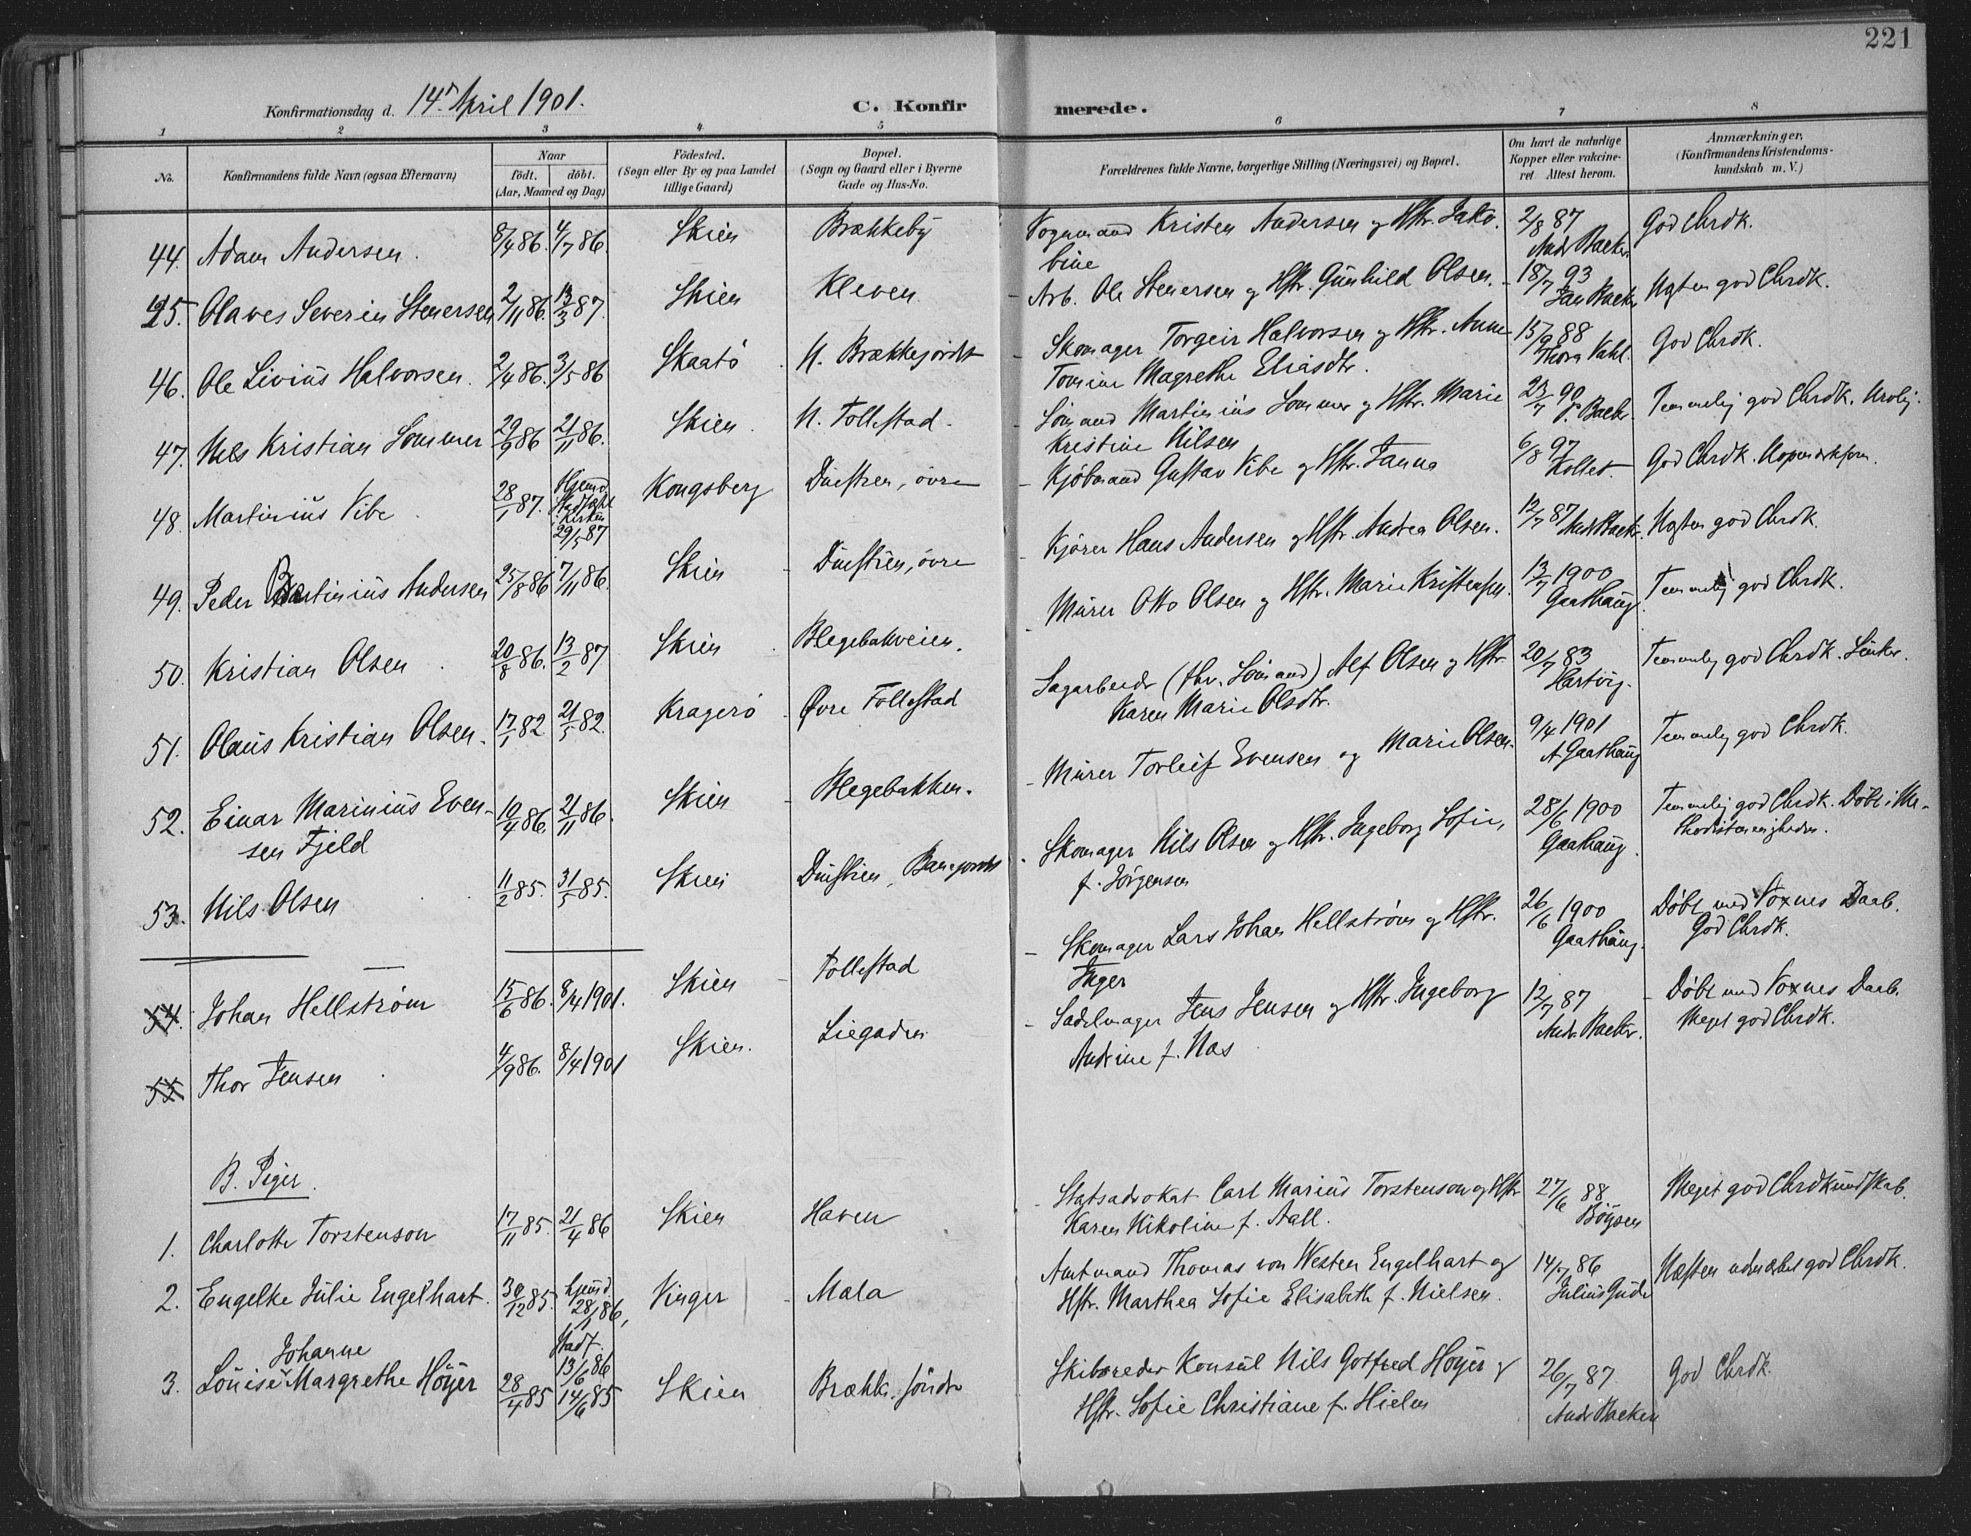 221
Konfirmationsdag d. 14de April 1901. C. Konfirmerede.
1 2 3 4 5 6 7 8
No. Konfirmandens fulde Navn (ogsaa Efternavn) Naar født. døbt. (Aar, Maaned og Dag) Födested. (Sogn eller By og paa Landet tillige Gaard) Bopæl. (Sogn og Gaard eller i Byerne Gade og Hus-No. Forældrenes fulde Navne, borgerlige Stilling (Næringsvei) og Bopæl. Om havt de naturlige Kopper eller vakcineret. Attest herom. Anmærkninger. (Konfirmandens Kristendomskundskab m. V.)
44. Adam Andersen. 8/4 86. 4/7 86. Skien Brækkeby Vognmand Kristen Andersen og Hstr. Jako- 2/8 87 God Chrdk.
bine Andr. Backer
45. Olaves Severin Stenersen 2/11 86. 13/3 87. Skien Kleven Arb. Ole Stenersen og Hstr. Gunhild Olsen. 18/7 93 Negten god Chrdk.
46. Ole Livius Halvorsen. 2/4 86. 3/5 86 Skaatö N. Brækkejordet Skomager Torgeir Halvorsen og Hstr. Anne 15/9 88 God Chrdk.
Tomine Magrethe Eliasdtr. Thorn Vahl.
47. Nils Kristian Sommer 29/9 86 21/11 86. Skien N. Follestad Sömand Martinius Sommer og Hstr. Marie 23/7 90 Temmelig god Chrdk. Urolig.
Kristine Nilsen
48. Martinius Vibe 28/1 87. Hjemd. Stadfæst i Kirken 29/5 87 Kongsberg Duestien, övre Kjöbmand Gustav Vibe og Hstr. Fanna 6/8 97 God Chrdk. Uopmerksom.
49. Peder Bertinius Andersen 25/8 86 7/11 86. Skien Duestien, övre Kjörer Hans Andersen og Hstr. Andrea Olsen. 12/7 87 Andr. Backer. Negten god Chrdk.
50. Kristian Olsen 20/8 86. 13/2 87 Skien Blegebakveien. Murer Otto Olsen og Hstr. Marie Kristensen. 13/7 1900 Temmelig god Chrdk.
Gaathaug
51. Olaus Kristian Olsen. 17/1 82 21/5 82. Kragerö Övre Follestad Sagarbeider (fhv. Sömand) Alf Olsen og Hstr 20/7 83 Temmelig god Chrdk. Sinker.
Karen Marie Olsdtr. Hartvig.
52. Einar Marinius Even- 10/4 86. 21/11 86. Skien Blegebakken. Murer Torleif Evensen og Marie Olsen. 9/4 1901 Temmelig god Chrdk.
sen Fjeld A. Gaathaug
53. Nils Olsen 11/2 85. 31/5 85. Skien Duestien, Skomager Nils Olsen og Hstr. Ingeborg Sofie, 28/6 1900 Temmelig god Chrdk. Döbt i Me-
f. Jörgensen Gaathaug. thodistmenigheden.
54. Johan Hellström 15/6 86. 8/4 1901. Skien Follestad Skomager Lars Johan Hellström og Hstr. 26/6 1900 Döbt med Voxnes Daab.
Inger Gaathaug. God Chrdk.
55 Thor Jensen 4/9 86. 8/4 1901 Skien. Liegaden Sadelmager Jens Jensen og Hstr. Ingeborg 12/7 87 Döbt med Voxnes Daab.
Andrine f. Næs Andr. Backer. Meget god Chrdk.
B. Piger.
1. Charlotte Torstenson 17/11 85. 21/4 86 Skien Haven Statsadvokat Carl Marius Torstenson og Hstr 27/6 88 Meget god Chrdkundskab.
Karen Nikoline f. Aall. Böysen
2. Engelke Julie Engelhart. 30/12 85. hjemd. 28/1 86, Vinger Mæla Amtmand Thomas von Westen Engelhart og 14/7 86 Næsten udmærket god Chrdk.
Stadf. 13/6 86 Hstr. Marthea Sofie Elisabeth f. Nielsen. Julius Gude
Johanne
3. Louise Margrethe Höyer 28/4 85 14/6 85 Skien Brække, söndre Skibsreder Konsul Nils Gotfred Höyer og 26/7 87 God Chrdk.
Hstr. Sofie Christiane f. Hielm Andr. Backer